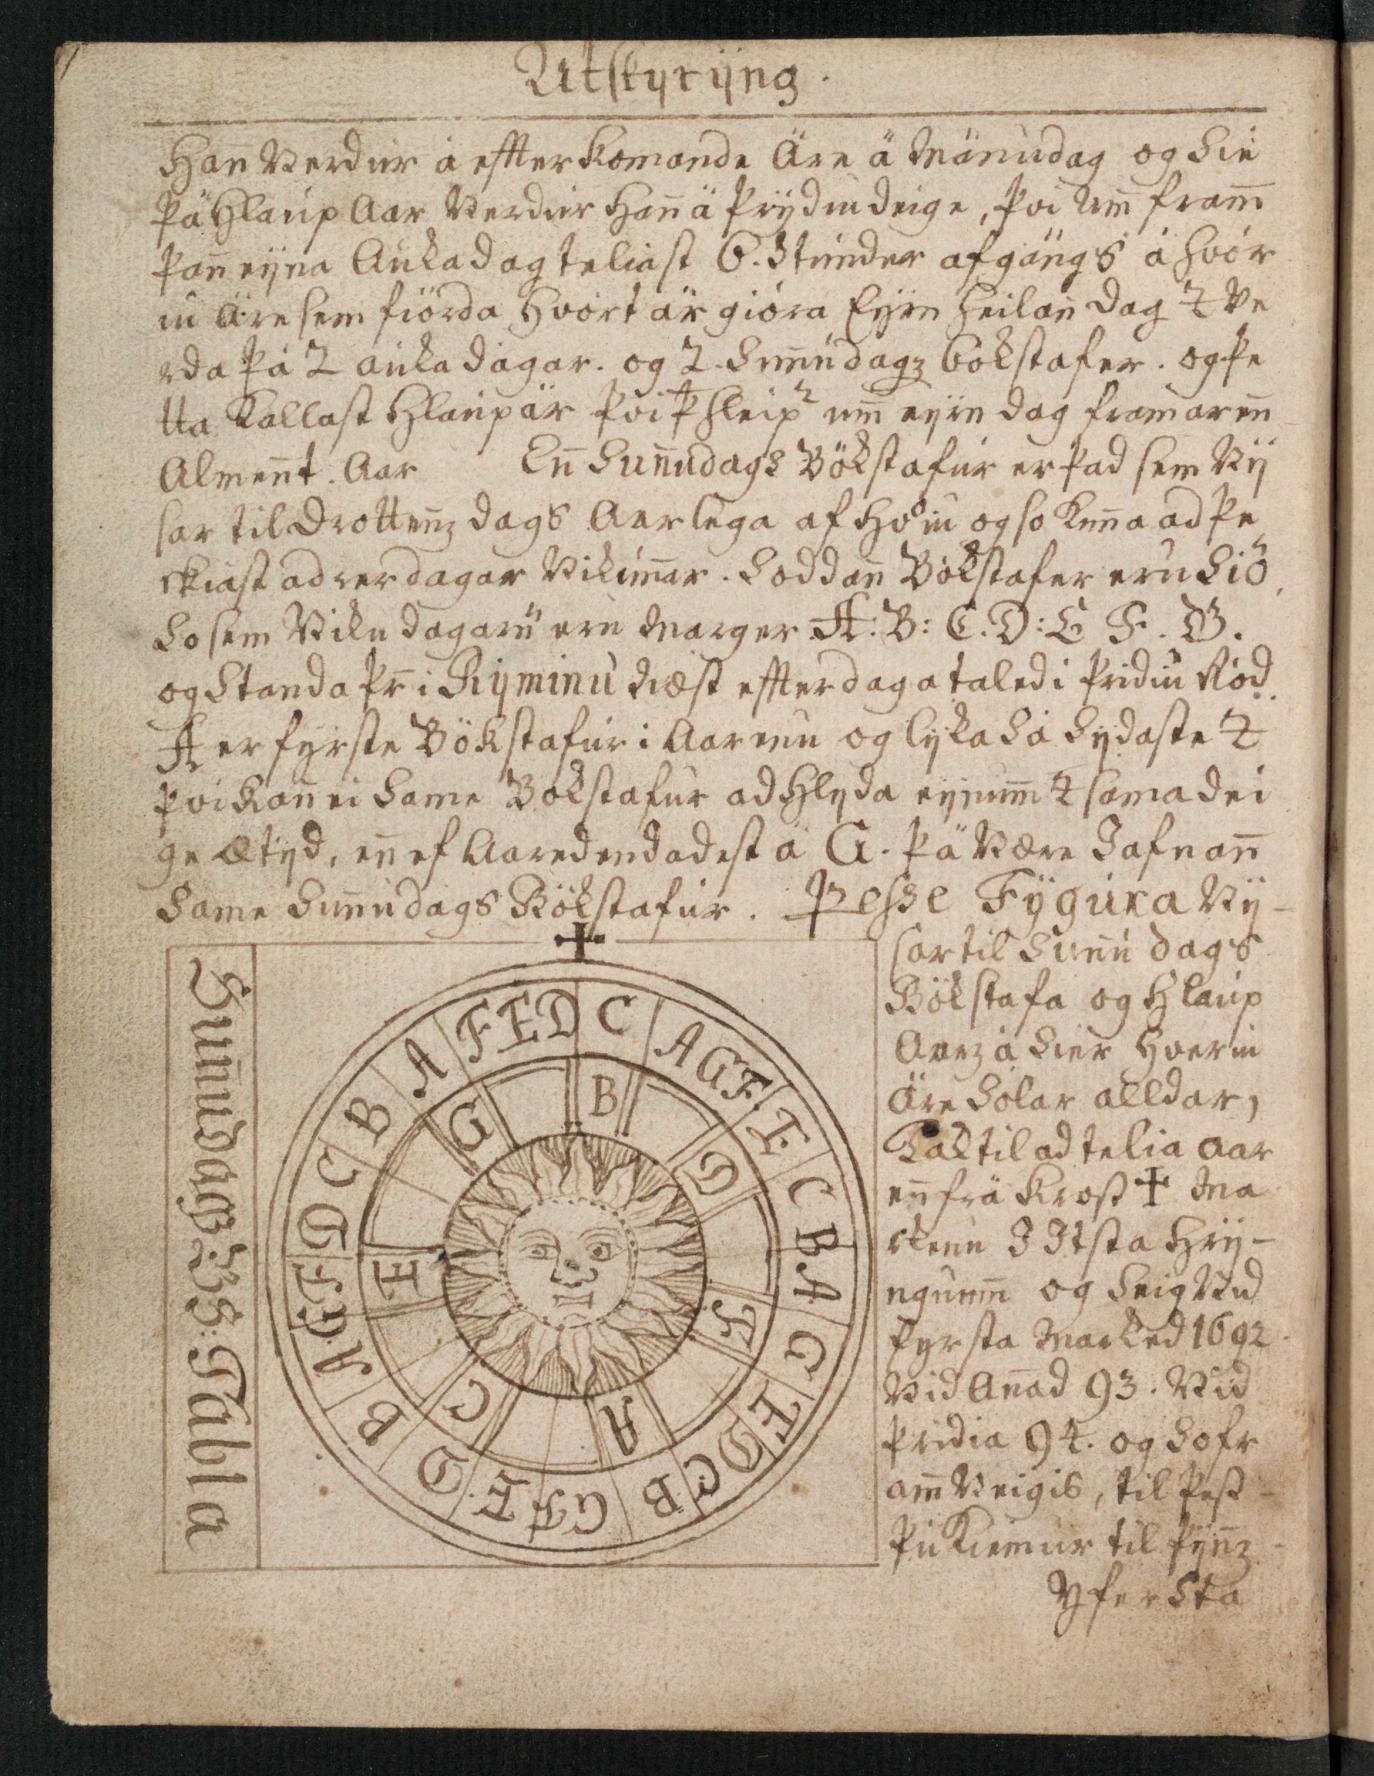 Utskyrijng.
Han Verdur á effterkomande Äre ä Mänudag og Sie
Þä Hlaup Aar Verdur Han̄ ä Þrÿdiudeige, Þvi um̄ fram̄
Þan̄ eyna Aukadag teliast 6. Stunder afgángs á hvör
iu äre sem fiörda hvört är giöra Eÿrn heilan̄ dag & Ve
rda Þá 2 auka dagar. og 2 Sun̄udagz bökstafer. og Þe
tta Kallast Hlaupär Þvi Þ hleipr um̄ eÿrn dag framar en̄
Almen̄t. Aar En̄ Sun̄udags Bökstafur er Þad sem Vÿ
sar til Drotten̄z dags Aarlega af hvöiu og so Kun̄a ad Þe
ckiast adrer dagar Vikun̄ar. Soddan̄ Bökstafer eru Siö,
So sem Viku dagarn̄ eru Marger A: B: C. D: E F. G.
og Standa Þr̄ i Rÿminu Næst effter dagataled i Þridiu Röd.
A er fyrste Bökstafur i Aarenu og lÿka Sá Sÿdaste &
Þvi Kan̄ ei Same Bökstafur ad Hlÿda eÿnum̄ & sama dei
ge Ætÿd, en̄ ef Aared endadest ä G. Þä Være Jafnan̄
Same Sun̄udags Bökstafur. Þesse Fÿgura Vÿ-
sar til Sun̄u dags
Bökstafa og Hlaup
Aarz á Sier hveriu
Äre Solar alldar,
Tak til ad telia Aar
en̄ frä Kross ✝ Ma
rkenu J Itsta Hrÿ-
ngnum̄ og Seig Vid
fyrsta Marked 1692.
Vid An̄ad 93. Vid
Þridia 94. og So fr
am̄Veigis, til Þess
Þu Kiemur til Þÿn̄z
Yfer Sta
Sun̄udagz Bs: Tabla
✝
C A G F E C B A G F D C B G F E D B A G F D C B A F E D
B D F A C E G